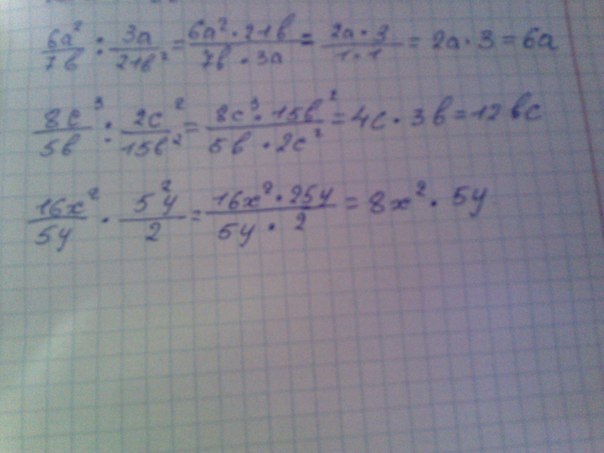 6a²/7b : 3a/21b² = 6a²·21b/7b·3a = 2a·3/1·1 = 2a·3 = 6a
8c³/5b : 2c²/15b² = 8c³·15b²/5b·2c² = 4c·3b = 12bc
16x²/5y · 5²y/2 = 16x²·25y/5y·2 = 8x²·5y